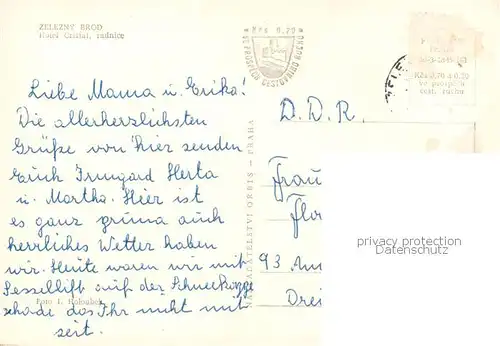 ŽELEZNÝ BROD
Hotel Cristal, radnice
Kčs 0,20
VE PROSPĚCH CESTOVNÍHO RUCHU
Kčs 0,70 a 0,20
ve prospěch
cest. ruchu
Liebe Mama u. Erika!
Die allerherzlichsten
Grüße von hier senden
Euch Irmgard Herta
u. Martha. Hier ist
es ganz prima auch
herrliches Wetter haben
wir. Heute waren wir mit
Sessellift auf der Schneekoppe
schade das Ihr nicht mit
seit.
Foto J.
NAKLADATELSTVÍ ORBIS - PRAHA
D. D. R.
Frau
Flor
93 Am
Drei
privacy protection
Datenschutz